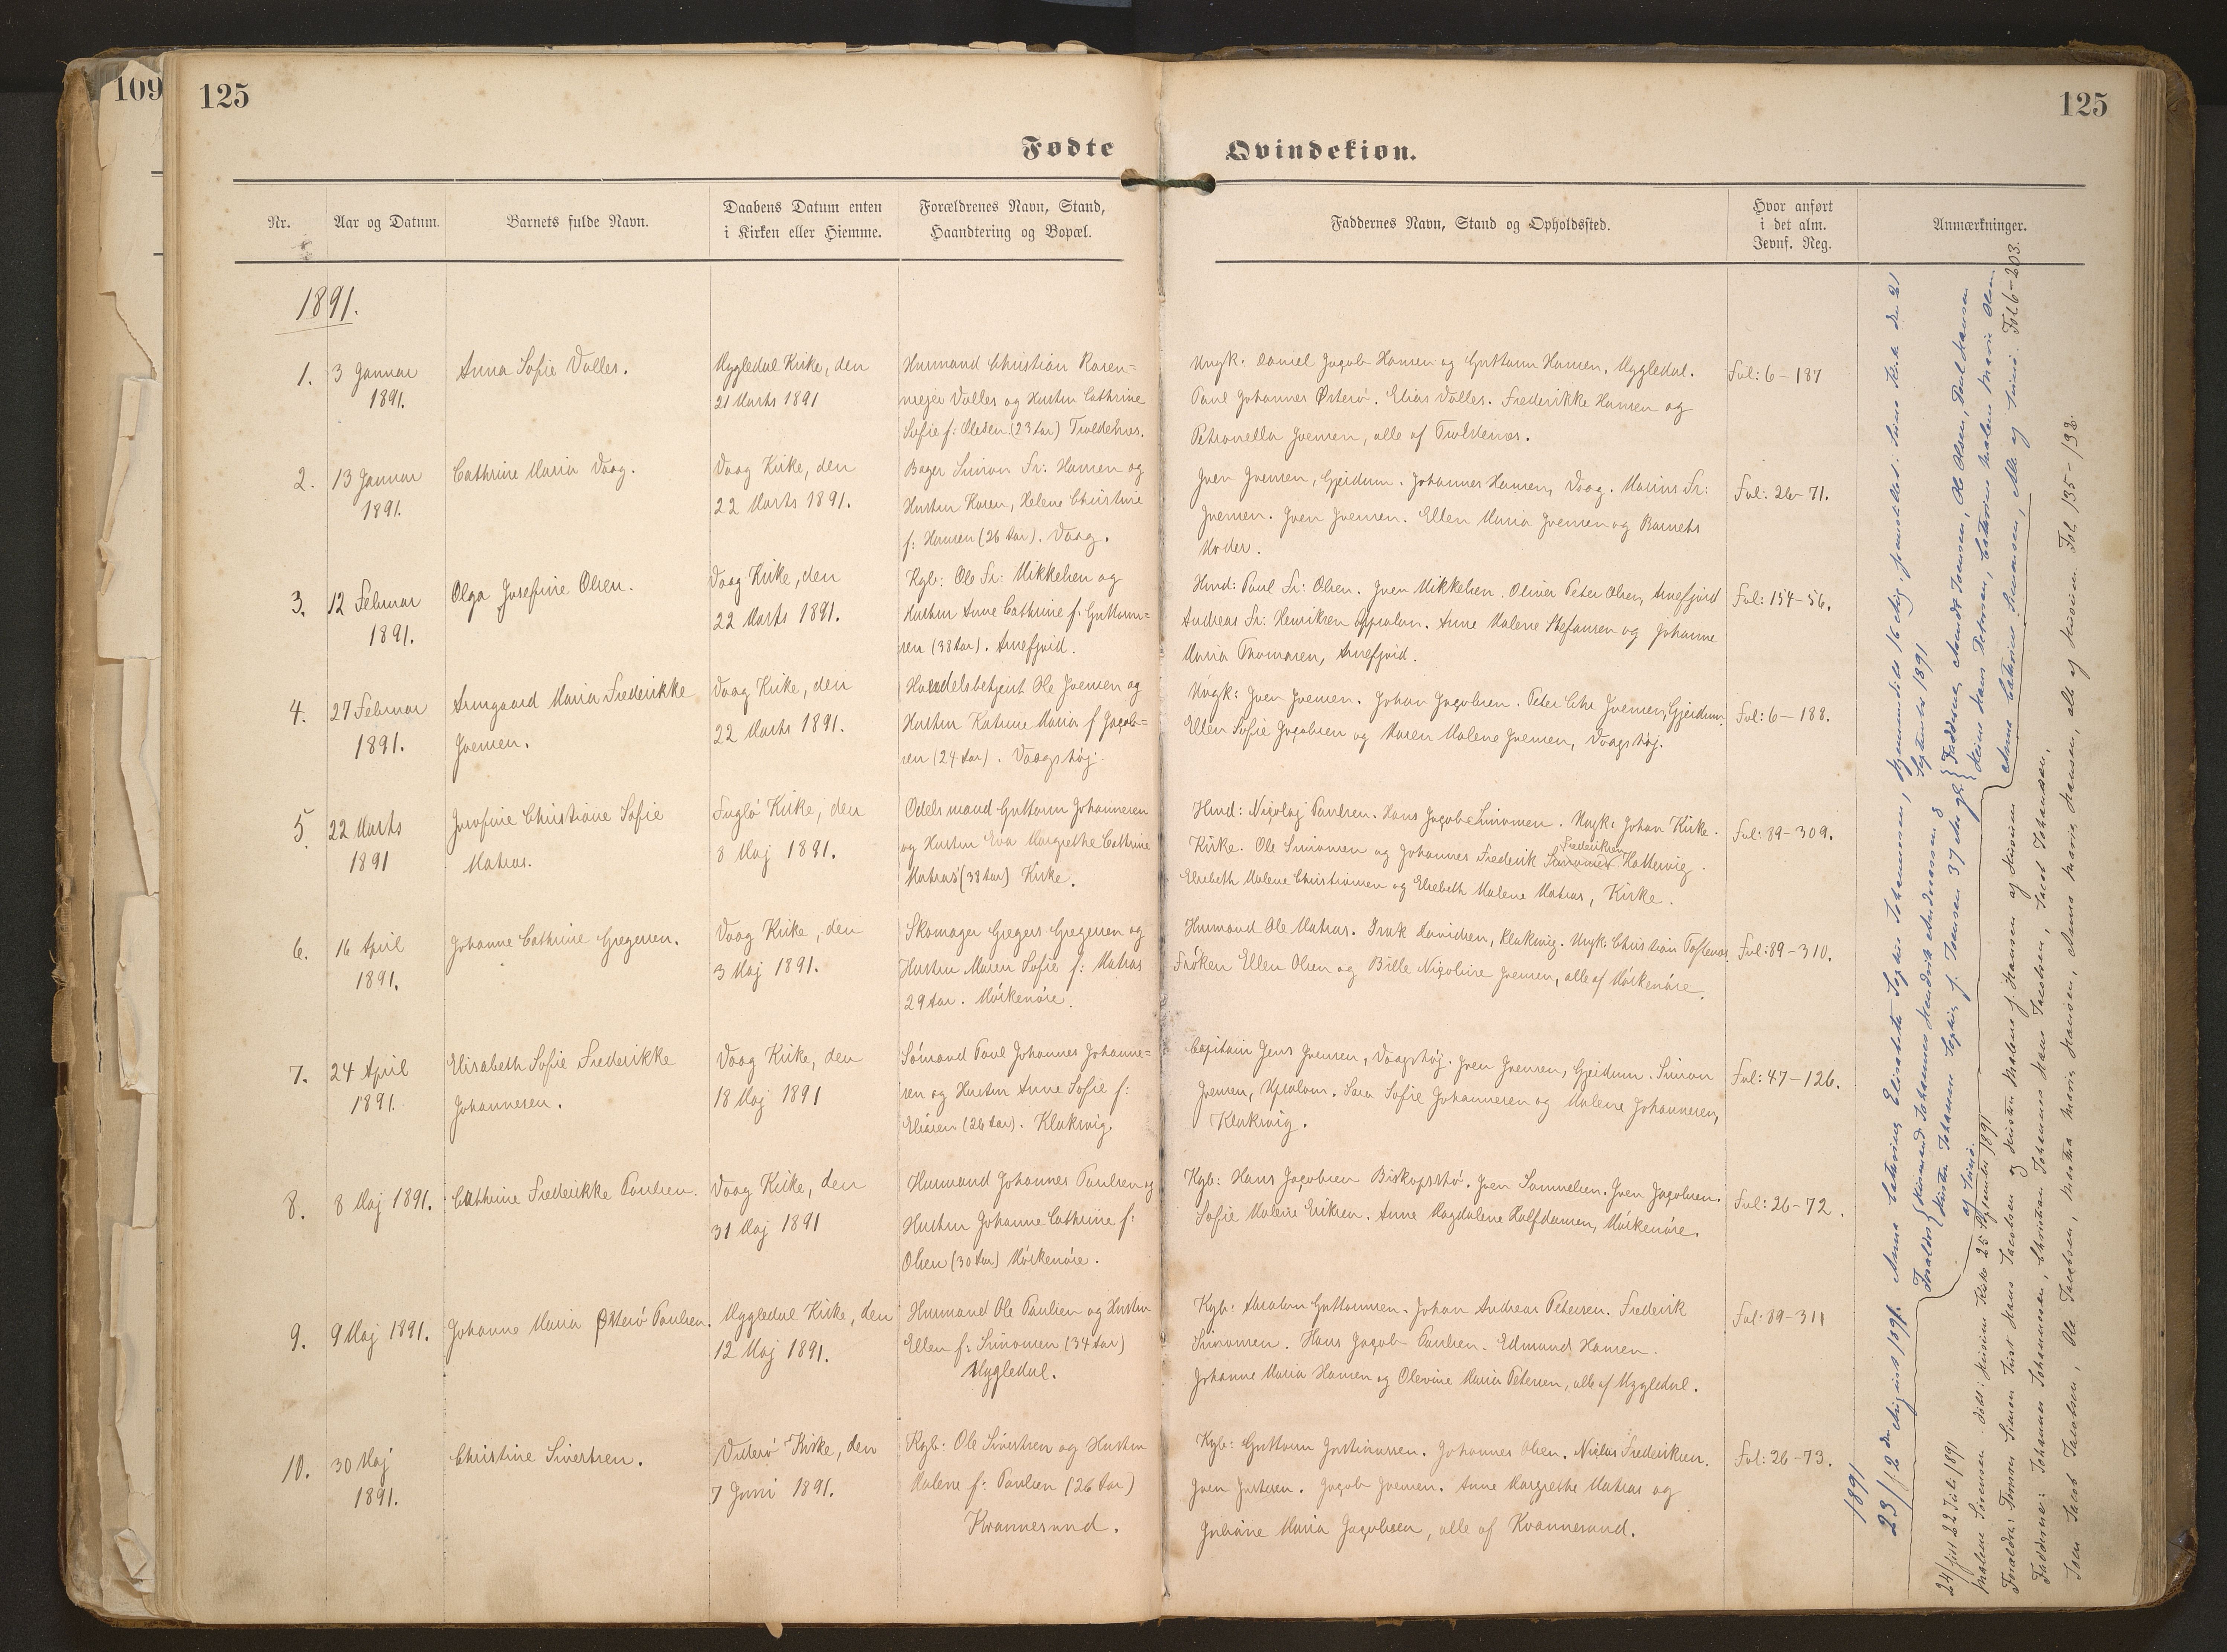 109
125
125
Fødte
Qvindekiøn.
Nr.
Aar og Datum.
Barnets fulde Navn.
Daabens Datum enten
i Kirken eller Hiemme.
Forældrenes Navn, Stand,
Haandtering og Bopæl.
Faddernes Navn, Stand og Opholdssted.
Hvor anført
i det alm.
Jevnf. Reg.
Anmærkninger.
1891.
1.
3 Januar
1891.
Anna Sofie Valles.
Mygledal Kirke, den
21 Marts 1891
Husmand Christian Rosen=
mejer Valles og Hustru Cathrine
Sofie f: Olesen (23 Aar) Troldenæs.
Ungk. Daniel Jacob Hansen og Guttorm Hansen, Mygledal.
Paul Johannes Østerø. Elias Valles. Frederikke Hansen og
Petronella Joensen, alle af Troldenæs.
Fol: 6 - 187
2.
13 Januar
1891.
Cathrine Maria Vaag.
Vaag Kirke, den
22 Marts 1891.
Bager Simon Fr: Hansen og
Hustru Karen, Helene Christine
f: Hansen (26 Aar). Vaag.
Joen Joensen, Gjerdum. Johannes Hansen, Vaag. Marius Fr:
Joensen. Joen Joensen. Ellen Maria Joensen og Barnets
Moder.
Fol: 26 - 71.
3.
12 Februar
1891.
Olga Josefine Olsen.
Vaag Kirke, den
22 Marts 1891.
Kgb: Ole Fr: Mikkelsen og
Hustru Anne Cathrine f: Guttorm=
sen (38 Aar). Arnefjord.
Hmd: Paul Fr: Olsen. Joen Mikkelsen. Oliver Peter Olsen, Arnefjord
Andreas Fr: Henriksen Opsalum. Anne Malene Stefansen og Johanne
Maria Thomasen, Arnefjord.
Fol: 154 - 56.
4.
27 Februar
1891.
Armgaard Maria Frederikke
Joensen.
Vaag Kirke, den
22 Marts 1891.
Handelsbetjent Ole Joensen og
Hustru Katrine Maria f Jacob=
sen (24 Aar). Vaagshøj.
Ungk: Joen Joensen. Johan Jacobsen. Peter Chr Joensen, Gjerdum.
Ellen Sofie Jacobsen og Maren Malene Joensen, Vaagshøj.
Fol: 6 - 188.
5.
22 Marts
1891
Josefine Christiane Sofie
Matras.
Fuglø Kirke, den
8 Maj 1891.
Odelsmand Guttorm Johannesen
og Hustru Eva Margrethe Cathrine
Matras (38 Aar) Kirke.
Hmd: Nicolaj Paulsen. Hans Jacob Simonsen. Ungk: Johan Kirke.
Kirke. Ole Simonsen og Johannes Frederik Simonsen Hattervig.
Frederiksen
Elsebeth Malene Christiansen og Elsebeth Malene Matras, Kirke.
Fol: 89 - 309.
6.
16 April
1891.
Johanne Cathrine Gregersen.
Vaag Kirke, den
3 Maj 1891.
Skomager Gregers Gregersen og
Hustru Maren Sofie f: Matras
29 Aar. Mórkenóre.
Husmand Ole Matras. Isak Davidsen, Klaksvig. Ungk: Christian Toftenæs.
Frøken Ellen Olsen og Bille Nicoline Joensen, alle af Mórkenóre.
Fol: 89 - 310.
7.
24 April
1891.
Elisabeth Sofie Frederikke
Johannesen.
Vaag Kirke, den
18 Maj 1891
Sómand Paul Johannes Johanne=
sen og Hustru Anne Sofie f:
Eliasen (26 Aar). Klaksvig.
Capitain Jens Joensen, Vaagshøj. Joen Joensen, Gjerdum. Simon
Joensen, Upsalum. Sara Sofie Johannesen og Malene Johannesen,
Klaksvig.
Fol: 47 - 126.
8.
8 Maj 1891.
Cathrine Frederikke Poulsen.
Vaag Kirke, den
31 Maj 1891
Husmand Johannes Poulsen og
Hustru Johanne Cathrine f:
Olsen (30 Aar) Mórkenóre.
Kgb: Hans Jacobsen Biskopsstø. Joen Samuelsen. Joen Jacobsen.
Sofie Malene Eriksen. Anne Magdalene Halfdansen, Mórkenóre.
Fol: 26 - 72.
9.
9 Maj 1891.
Johanne Maria Østerø Poulsen.
Mygledal Kirke, den
12 Maj 1891.
Husmand Ole Poulsen og Hustru
Ellen f: Simonsen (34 Aar)
Mygledal.
Kgb: Absalon Guttormsen. Johan Andreas Petersen. Frederik
Simonsen. Hans Jacob Poulsen. Edmund Hansen.
Johanne Maria Hansen og Olevine Maria Petersen, alle af Mygledal.
Fol: 89 - 311
10.
30 Maj
1891.
Christine Sivertsen.
Viderø Kirke, den
7 Juni 1891.
Kgb: Ole Sivertsen og Hustru
Malene f: Poulsen (26 Aar)
Kvannesund.
Kgb: Guttorm Justinussen. Johannes Olsen. Niclas Frederiksen.
Joen Justesen. Jacob Joensen. Anne Margrethe Matras og
Juliane Maria Jacobsen, alle af Kvannesund.
Fol: 26 - 73.
1891
23/ 12 den August 1891. Anna Catrina Elisabeth Sophie Johannesen, hjemmedøbt 16 Aug. fremstillet i Sunds Kirke den 21
September 1891
Forældre { Husmand Johannes Hendrik Andreassen og
Hustru Johanne Sophie f. Joensen 37 Aar gl.
af Sund.
Faddere, Arendt Joensen, Ole Olsen, Paul Hansen
Heine Hans Petersen, Catarina Malene Marie Olsen
Anna Catrine Simonsen, Alle af Sund. Fol 6-203.
24/ født 22 Juli 1891
Malene Sørensen. døbt: Husum Kirke 25 September 1891
Forældre: Tømrer Simon Just Hans Jacobsen og Hustru Malene f. Hansen af Husum
Fadderne: Johannes Johannesen, Christian Johannes Hans Jacobsen, Jacob Johansen,
Joen Jacob Jacobsen, Ole Jacobsen, Martha Marie Hansen, Anna Marie Hansen, alle af Husum. Fol. 135-192.